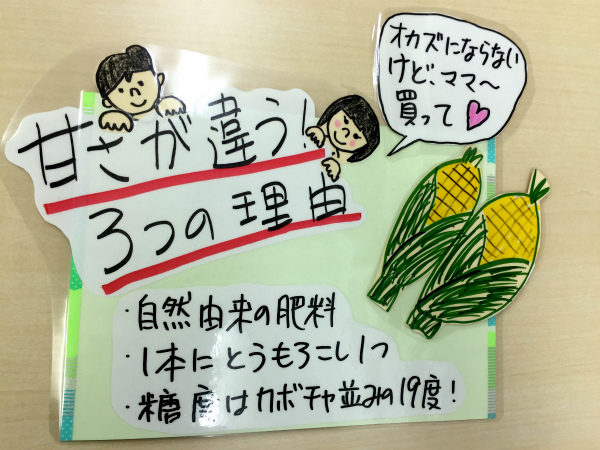 甘さが違う!
3つの理由
オカズにならない
けど、ママ〜
買って♡
・自然由来の肥料
・1本にとうもろこし1つ
・糖度はカボチャ並みの19度!